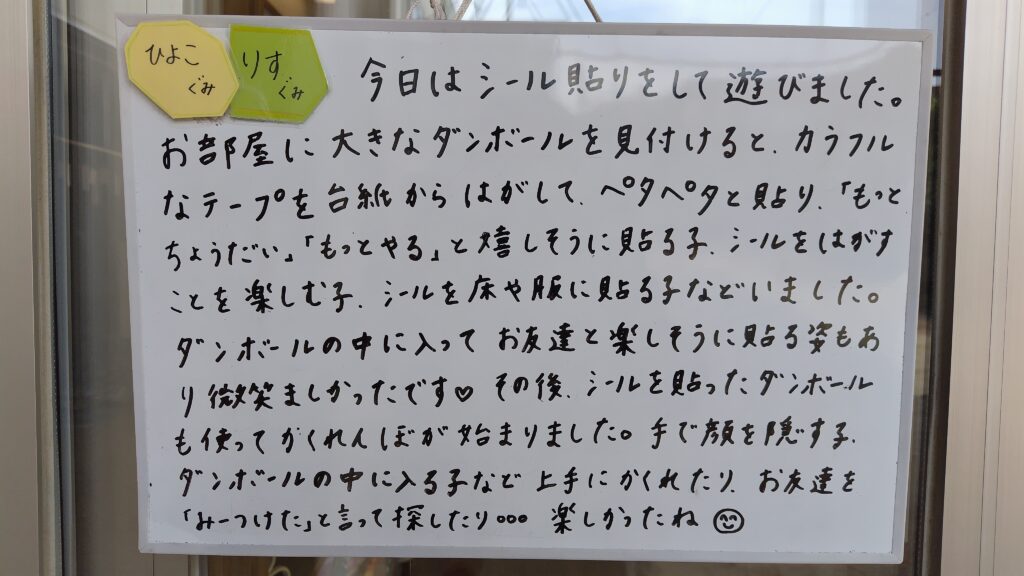 ひよこ
ぐみ
りす
ぐみ
今日はシール貼りをして遊びました。
お部屋に大きなダンボールを見付けると、カラフル
なテープを台紙からはがして、ペタペタと貼り、「もっと
ちょうだい」「もっとやる」と嬉しそうに貼る子、シールをはがす
ことを楽しむ子、シールを床や服に貼る子などいました。
ダンボールの中に入ってお友達と楽しそうに貼る姿もあ
り微笑ましかったです♡ その後、シールを貼ったダンボール
も使ってかくれんぼが始まりました。手で顔を隠する子、
ダンボールの中に入る子など上手にかくれたり、お友達を
「みーつけた」と言って探したり… 楽しかったね☺